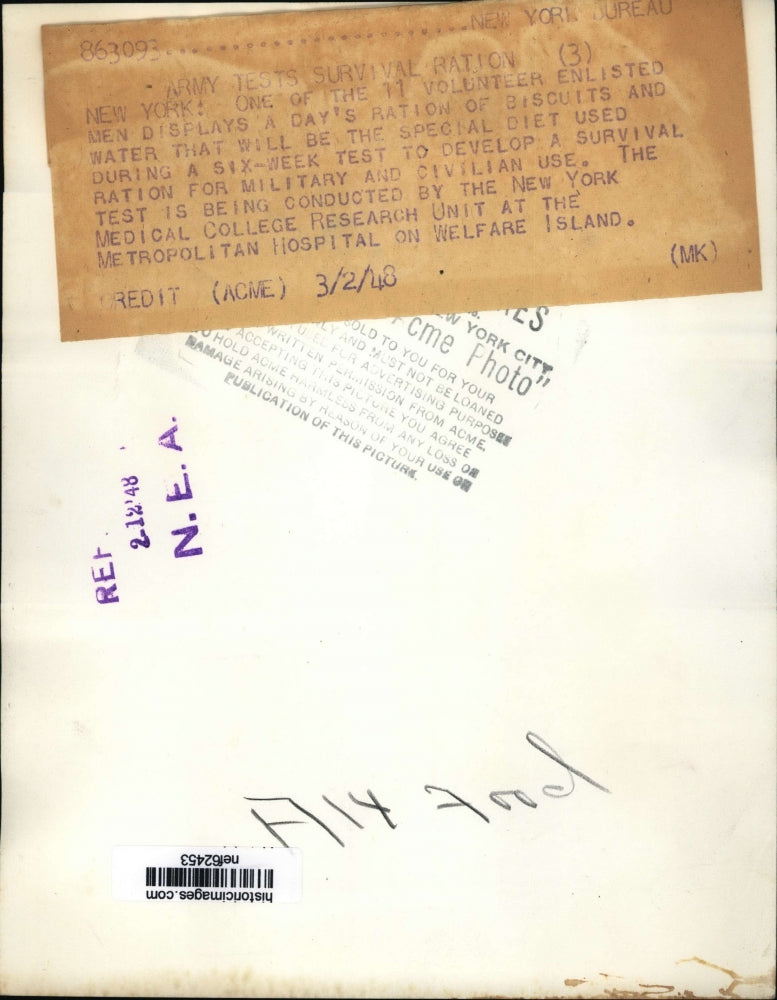 NEW YORK BUREAU
863093
ARMY TESTS SURVIVAL RATION (3)
NEW YORK: ONE OF THE 11 VOLUNTEER ENLISTED
MEN DISPLAYS A DAY'S RATION OF BISCUITS AND
WATER THAT WILL BE THE SPECIAL DIET USED
DURING A SIX-WEEK TEST TO DEVELOP A SURVIVAL
RATION FOR MILITARY AND CIVILIAN USE. THE
TEST IS BEING CONDUCTED BY THE NEW YORK
MEDICAL COLLEGE RESEARCH UNIT AT THE
METROPOLITAN HOSPITAL ON WELFARE ISLAND.
(MK)
CREDIT (ACME) 3/2/48
YORK CITY
Photo"
SOLD TO YOU FOR YOUR
AND MUST NOT BE LOANED
FOR ADVERTISING PURPOSES
WRITTEN PERMISSION FROM ACME.
ACCEPTING THIS PICTURE YOU AGREE
TO HOLD ACME HARMLESS FROM ANY LOSS OR
DAMAGE ARISING BY REASON OF YOUR USE OR
PUBLICATION OF THIS PICTURE.
REF.
N. E. A.
Food
historicimages.com
nef62453